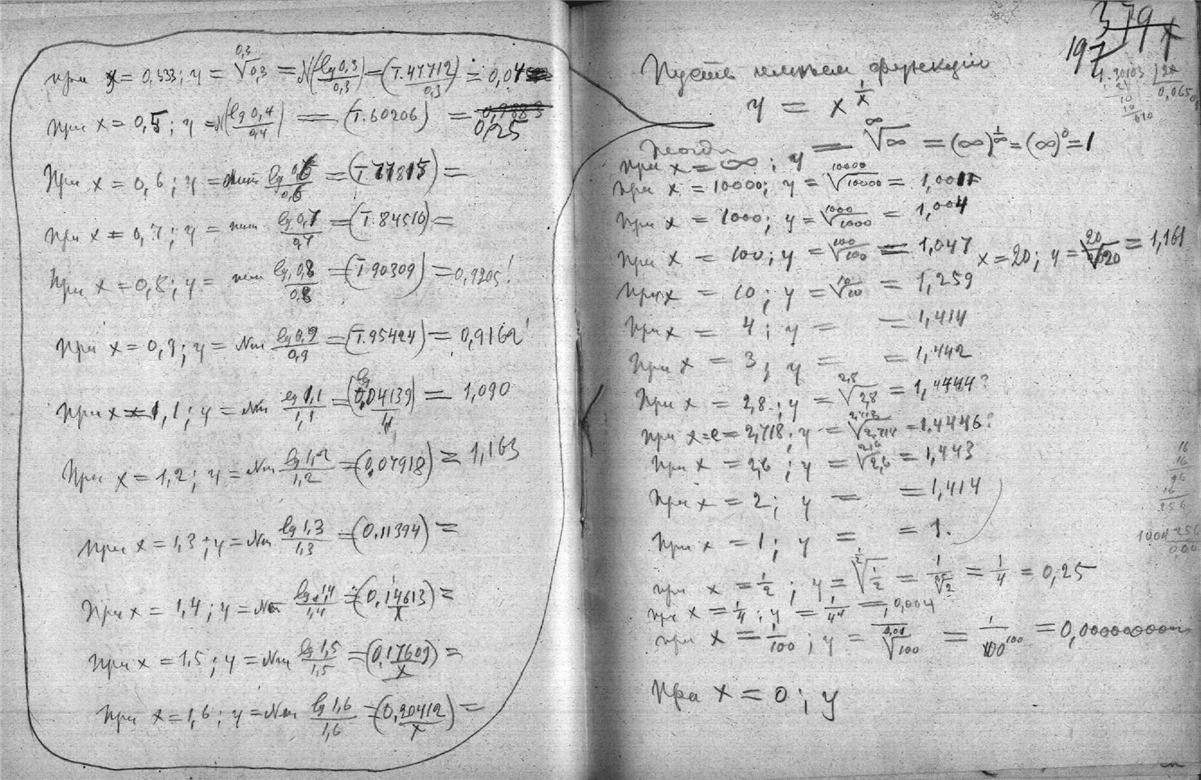 при x = 0,333; y = \sqrt[0,3]{0,3} = N(\frac{lg 0,3}{0,3}) = (\frac{\overline{1}.47712}{0,3}) = 0,04
при x = 0,5; y = N(\frac{lg 0,4}{0,4}) = (\overline{1}.60206) = 0,25
При x = 0,6; y = \frac{lg 0,6}{0,6} = (\overline{1}.77815) =
При x = 0,7; y = \frac{lg 0,7}{0,7} = (\overline{1}.84510) =
При x = 0,8; y = \frac{lg 0,8}{0,8} = (\overline{1}.90309) = 0,9205!
При x = 0,9; y = Num \frac{lg 0,9}{0,9} = (\overline{1}.95424) = 0,9162!
При x = 1,1; y = Num \frac{lg 1,1}{1,1} = (\frac{0,04139}{1,1}) = 1,090
При x = 1,2; y = Num \frac{lg 1,2}{1,2} = (0,07918) = 1,163
При x = 1,3; y = Num \frac{lg 1,3}{1,3} = (0.11394) =
При x = 1,4; y = Num \frac{lg 1,4}{1,4} = (\frac{0,14613}{x}) =
При x = 1,5; y = Num \frac{lg 1,5}{1,5} = (\frac{0,17609}{x}) =
При x = 1,6; y = Num \frac{lg 1,6}{1,6} = (\frac{0,20412}{x}) =
379
197
Пусть имеем функцию
y = x^{\frac{1}{x}}
При x = ∞; y = \sqrt[∞]{∞} = (∞)^{\frac{1}{∞}} = (∞)^0 = 1
при x = 10000; y = \sqrt[10000]{10000} = 1,001
При x = 1000; y = \sqrt[1000]{1000} = 1,004
При x = 100; y = \sqrt[100]{100} = 1,047 x = 20; y = \sqrt[20]{20} = 1,161
При x = 10; y = \sqrt[10]{10} = 1,259
При x = 4; y = = 1,414
При x = 3; y = = 1,442
При x = 2,8; y = \sqrt[2,8]{2,8} = 1,4444?
при x = e = 2,718; y = \sqrt[2,718]{2,718} = 1,4446?
При x = 2,6; y = \sqrt[2,6]{2,6} = 1,443
При x = 2; y = = 1,414
При x = 1; y = = 1.
при x = \frac{1}{2}; y = \sqrt[\frac{1}{2}]{\frac{1}{2}} = = \frac{1}{4} = 0,25
при x = \frac{1}{4}; y = \frac{1}{4^4} = 0,004
при x = \frac{1}{100}; y = = \frac{1}{100^{100}} = 0,00000000
При x = 0; y